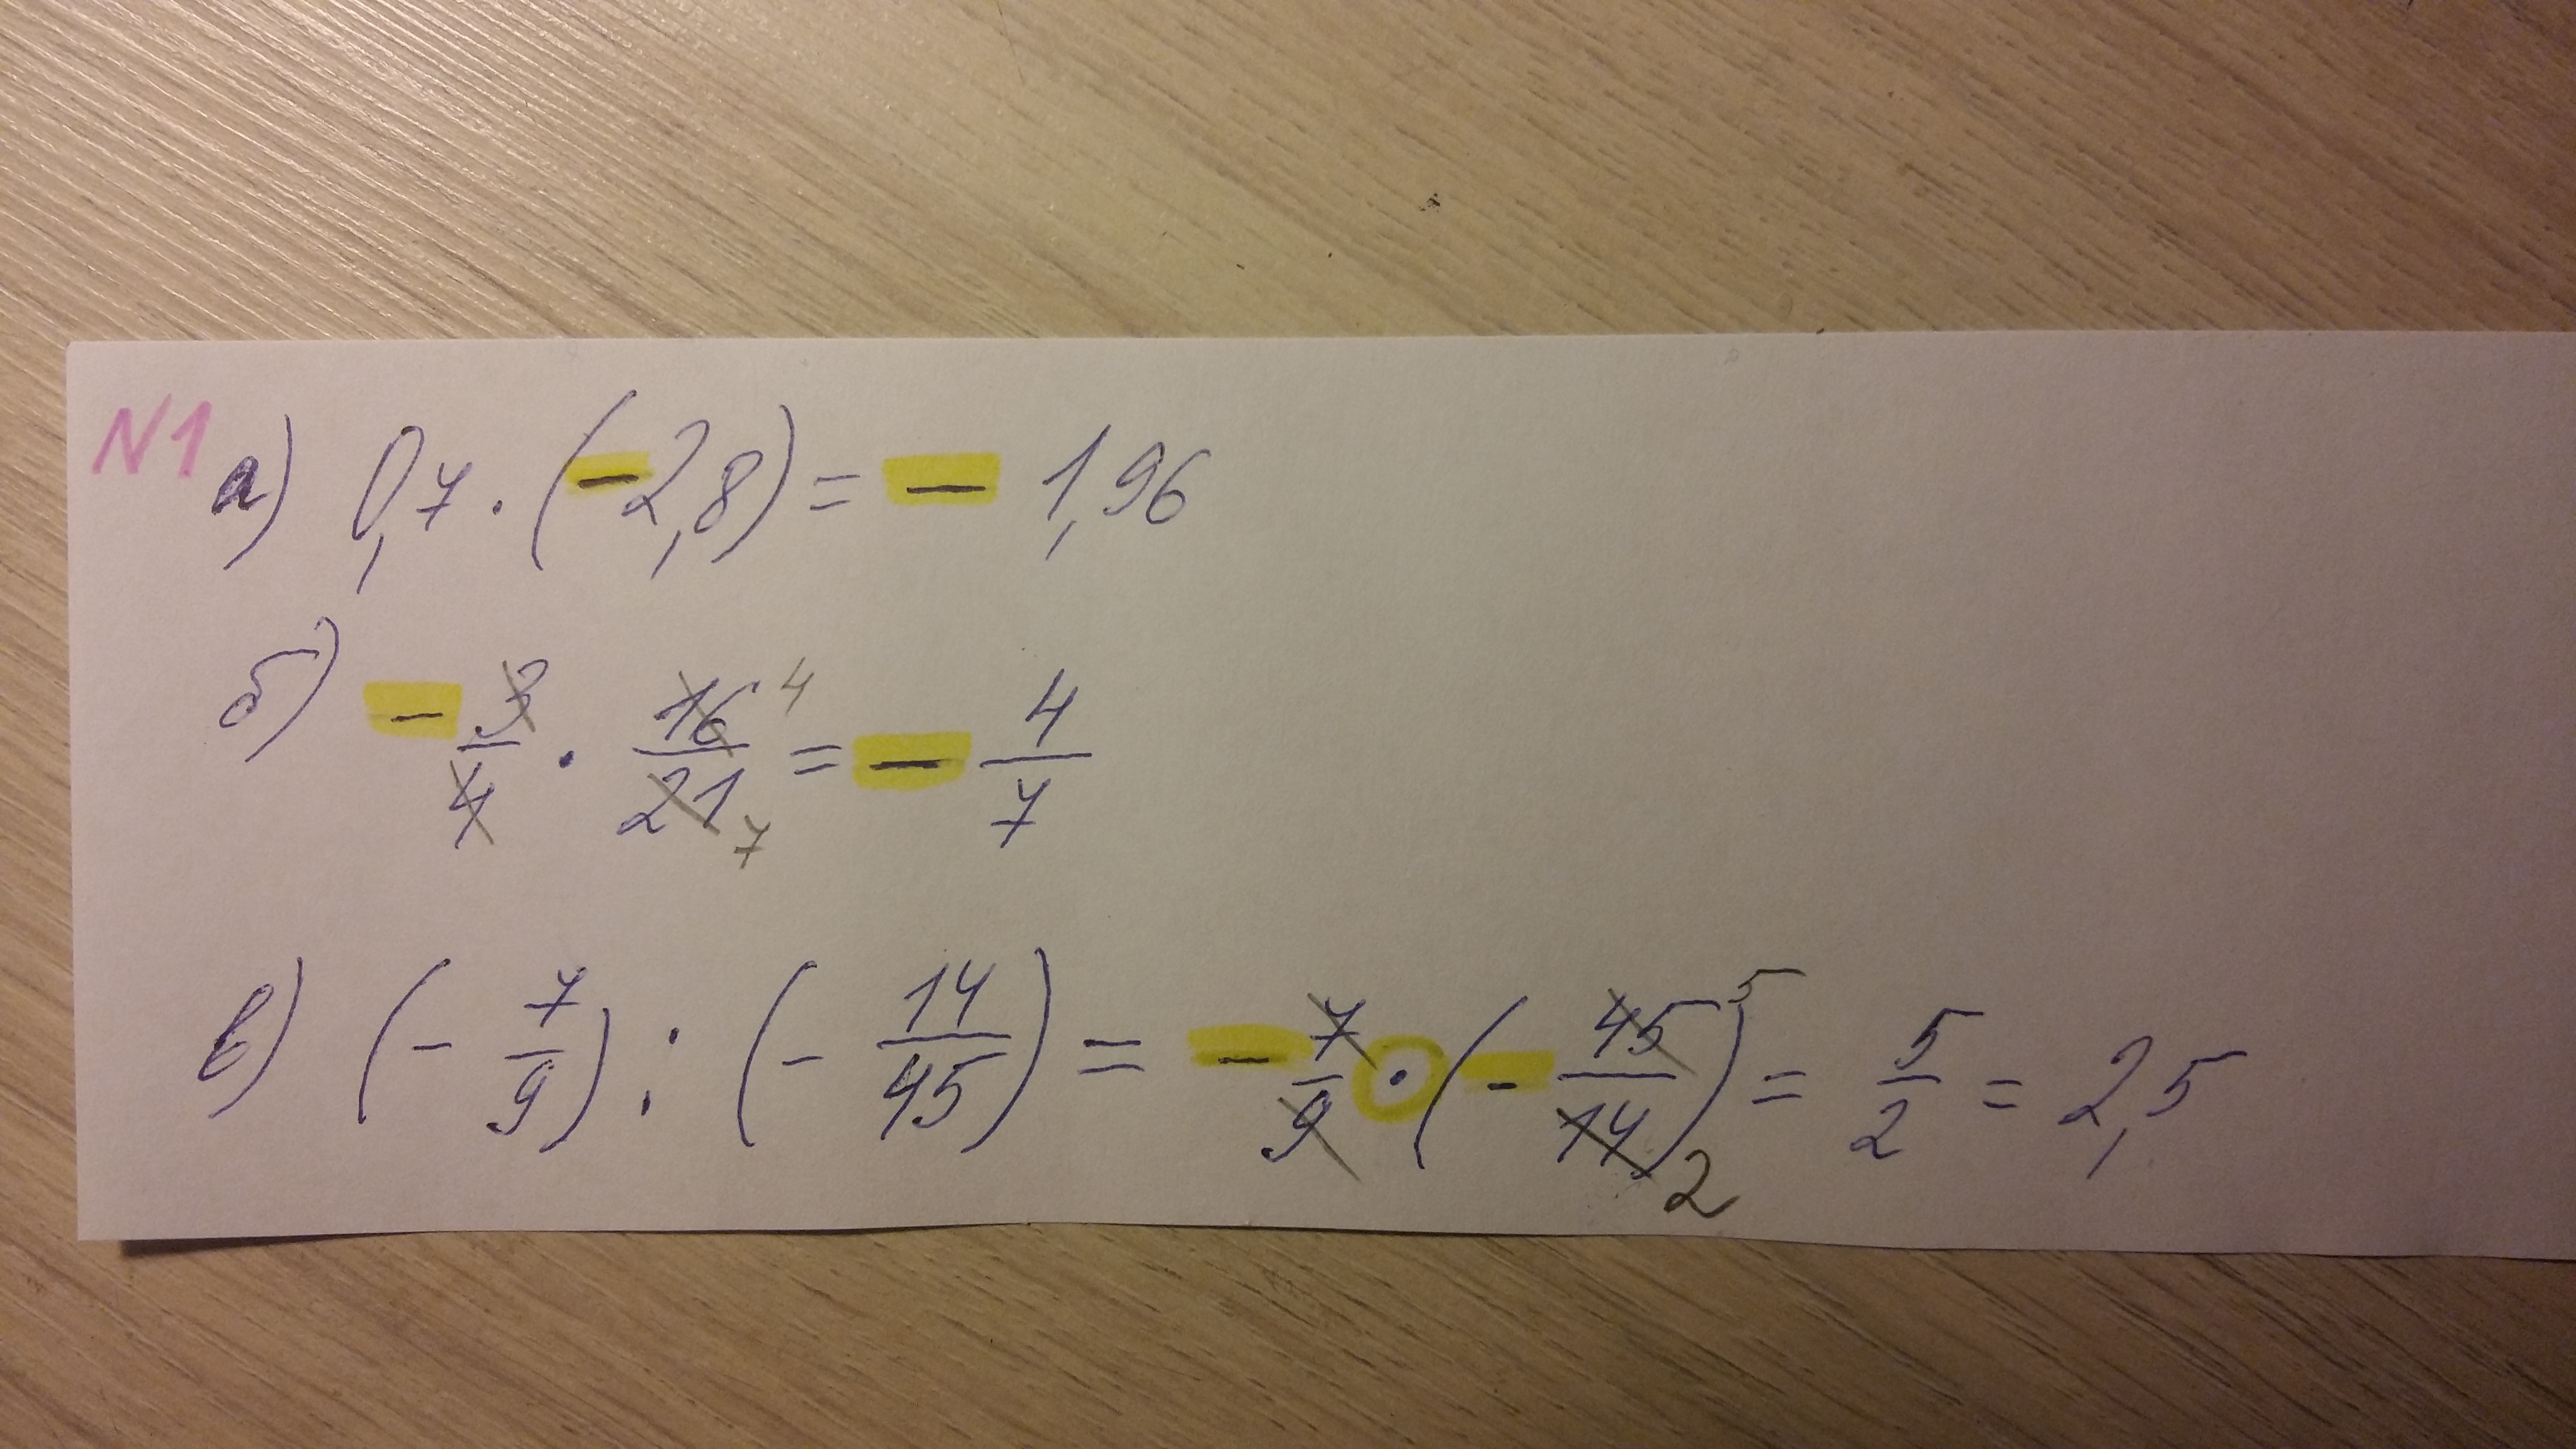 N1
а) 0,7 · (-2,8) = - 1,96
б) - 3/4 · 16/21 = - 4/7
4
7
в) (- 7/9) : (- 14/45) = - 7/9 · (- 45/14) = 5/2 = 2,5
5
2